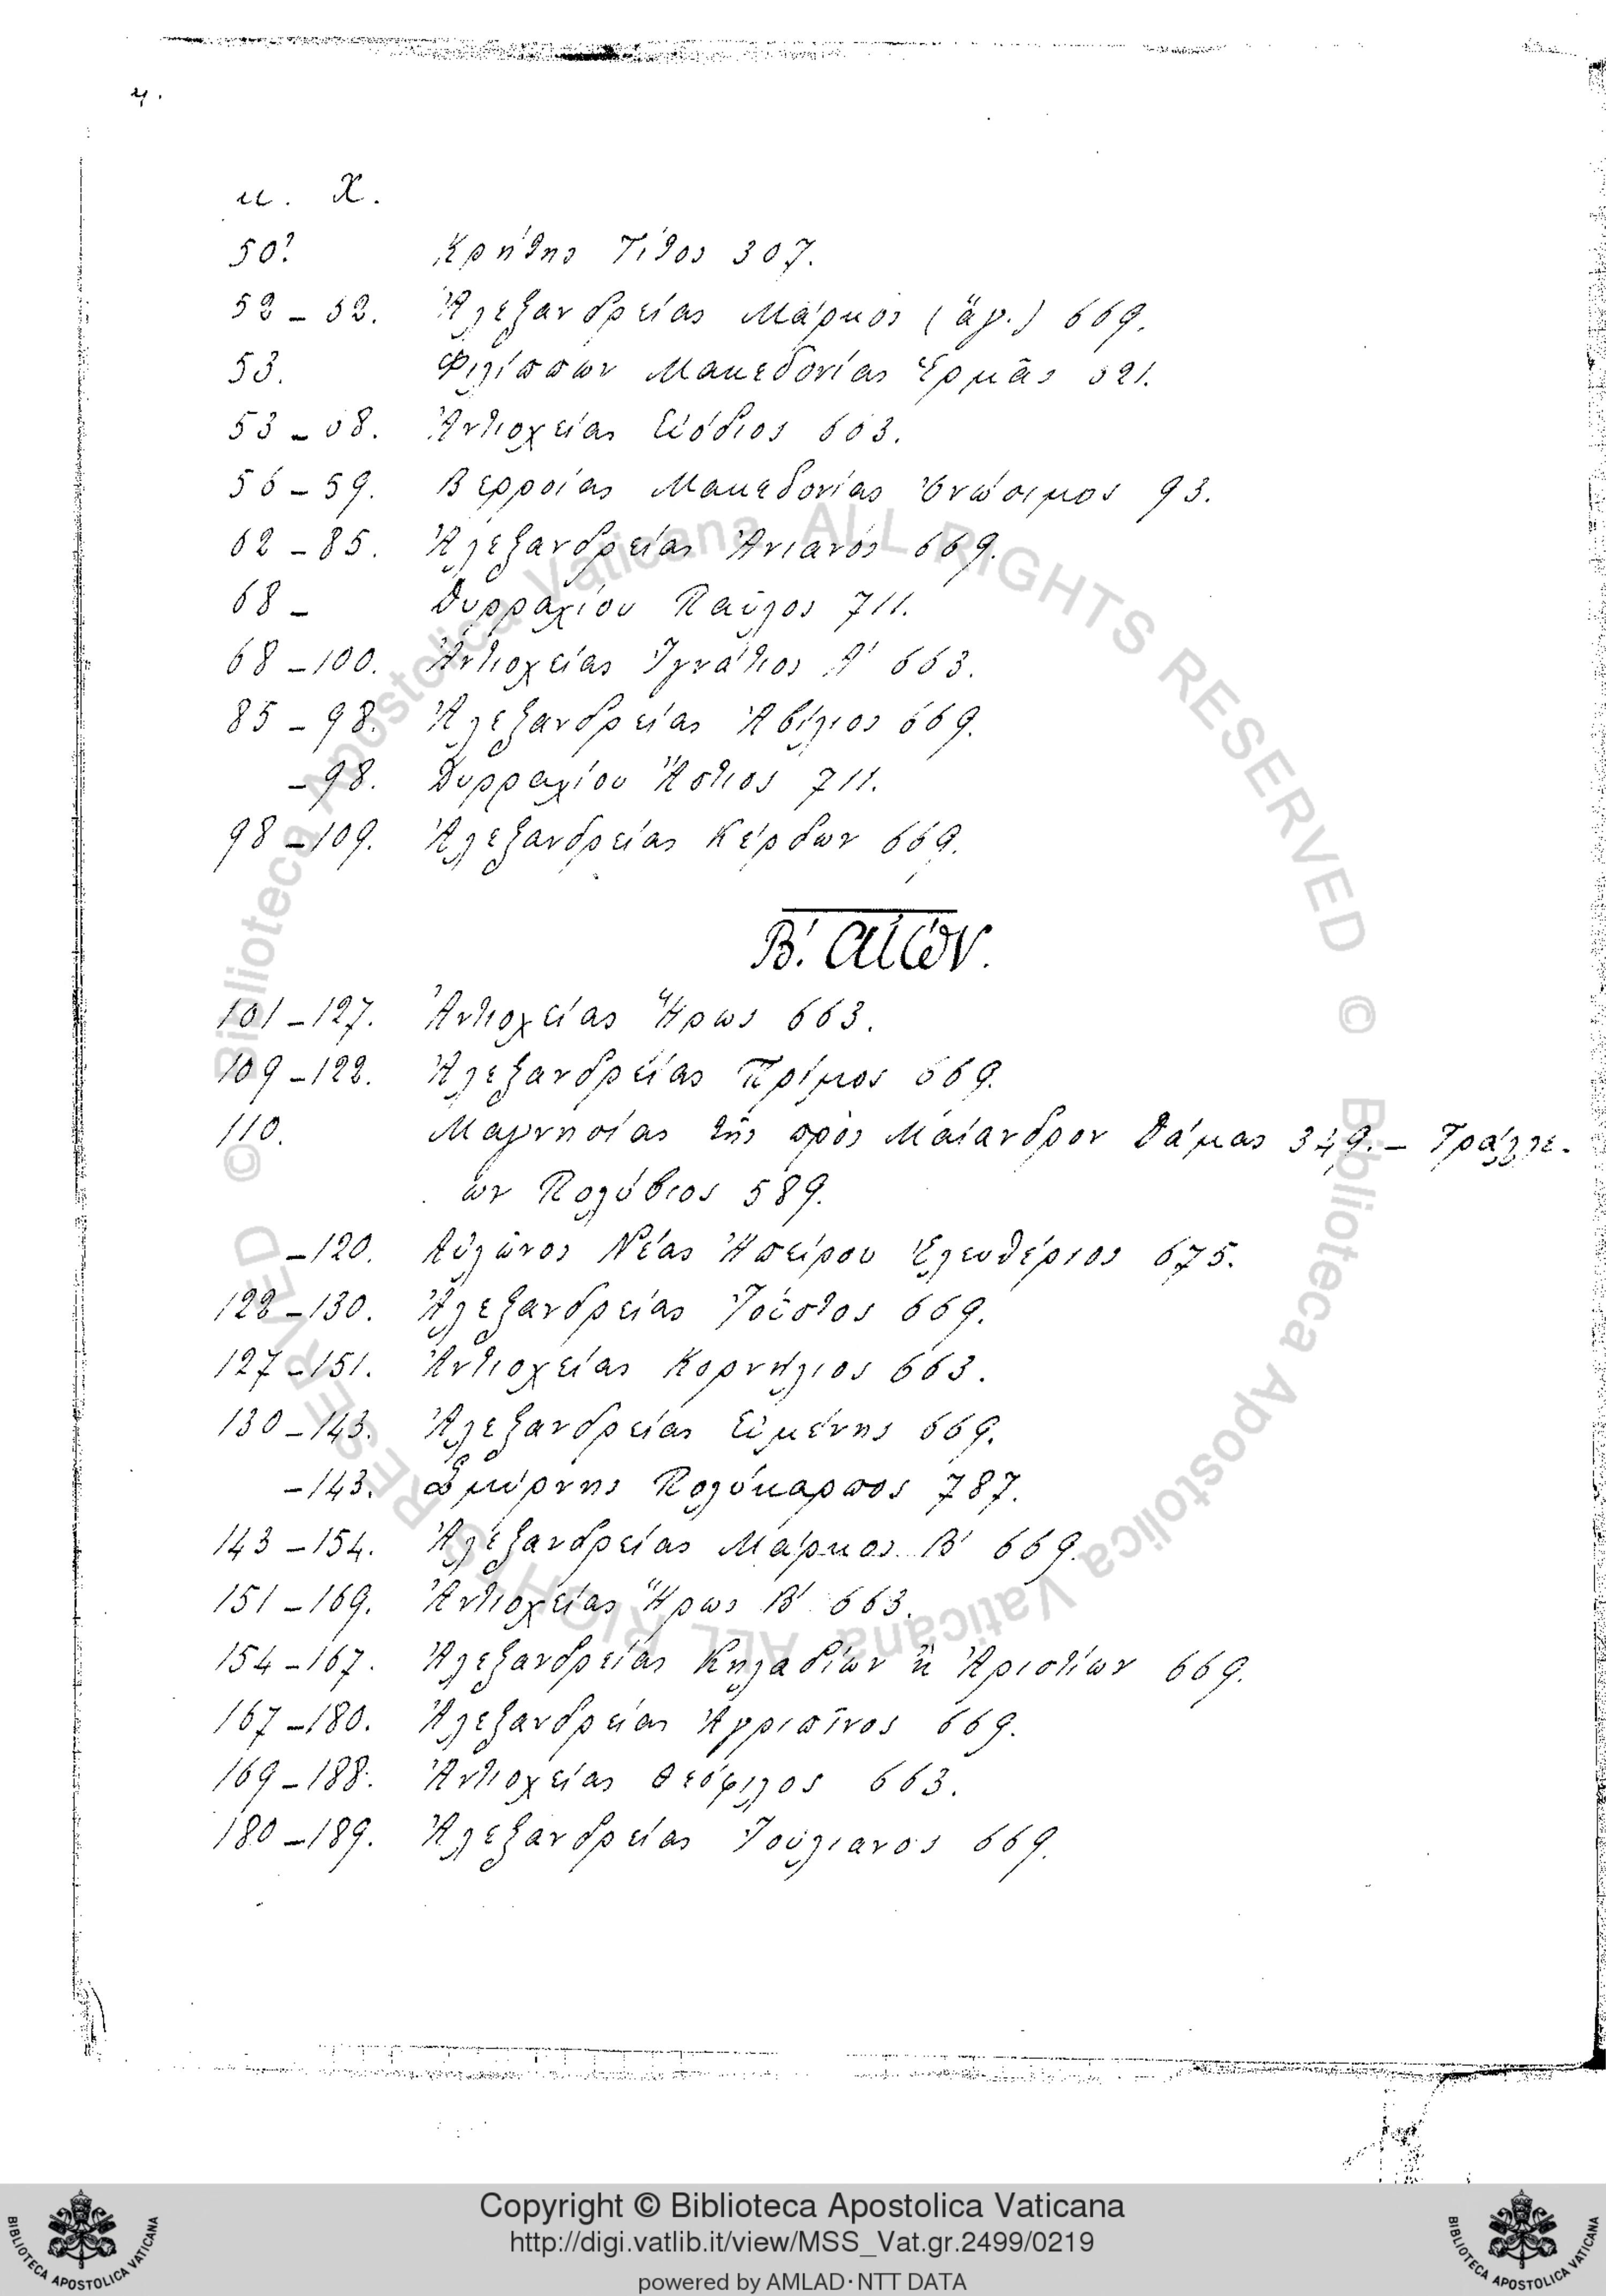 4.
μ. Χ.
50? Κρήτης Τίτος 307.
52 – 62. Ἀλεξανδρείας Μάρκος (ἅγ.) 669.
53. Φιλίππων Μακεδονίας Ἑρμᾶς 621.
53 – 68. Ἀντιοχείας Εὐόδιος 663.
56 – 59. Βερροίας Μακεδονίας Ὀνήσιμος 93.
62 – 85. Ἀλεξανδρείας Ἀνιανός 669.
68 – Δυρραχίου Παῦλος 711.
68 – 100. Ἀντιοχείας Ἰγνάτιος Α' 663.
85 – 98. Ἀλεξανδρείας Ἀβίλιος 669.
– 98. Δυρραχίου Ἄστιος 711.
98 – 109. Ἀλεξανδρείας Κέρδων 669.
Β'. αἰών.
101 – 127. Ἀντιοχείας Ἥρως 663.
109 – 122. Ἀλεξανδρείας Πρίμος 669.
110. Μαγνησίας τῆς πρὸς Μαίανδρον Δάμας 349. – Τράλλε-
ων Πολύβιος 589.
– 120. Αὐλῶνος Νέας Ἠπείρου Ἐλευθέριος 675.
122 – 130. Ἀλεξανδρείας Ἰοῦστος 669.
127 – 151. Ἀντιοχείας Κορνήλιος 663.
130 – 143. Ἀλεξανδρείας Εὐμένης 669.
– 143. Σμύρνης Πολύκαρπος 787.
143 – 154. Ἀλεξανδρείας Μάρκος Β' 669.
151 – 169. Ἀντιοχείας Ἥρως Β' 663.
154 – 167. Ἀλεξανδρείας Κηλαδίων ἢ Ἀριστίων 669.
167 – 180. Ἀλεξανδρείας Ἀγριπῖνος 669.
169 – 188. Ἀντιοχείας Θεόφιλος 663.
180 – 189. Ἀλεξανδρείας Ἰουλιανός 669.
© Biblioteca Apostolica Vaticana ALL RIGHTS RESERVED © Biblioteca Apostolica Vaticana ALL RIGHTS RESERVED
Copyright © Biblioteca Apostolica Vaticana
http://digi.vatlib.it/view/MSS_Vat.gr.2499/0219
powered by AMLAD·NTT DATA
BIBLIOTECA APOSTOLICA VATICANA
BIBLIOTECA APOSTOLICA VATICANA